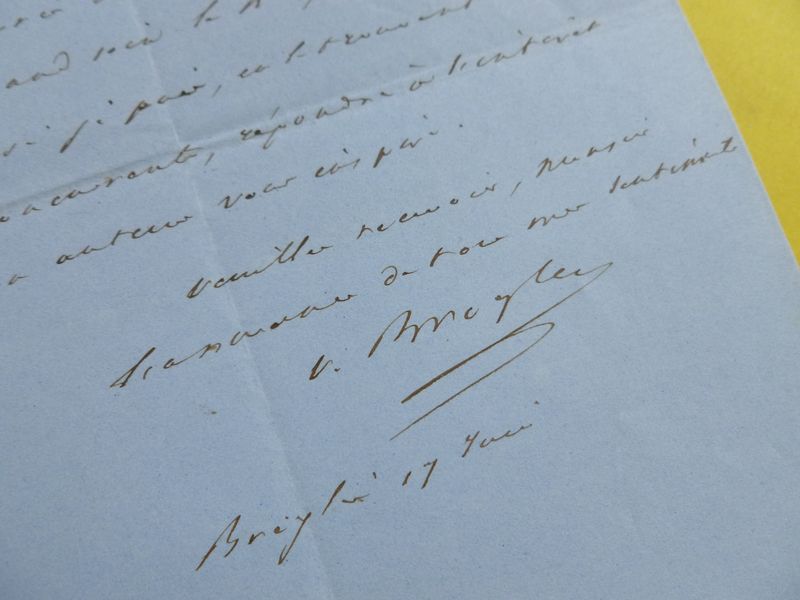 si je puis, en le trouvant
répondre à l'intérêt
auteur vous inspire.
veuillez recevoir, monsieur
l'assurance de tous mes sentiments
V. Broglie
Broglie 17 Juin